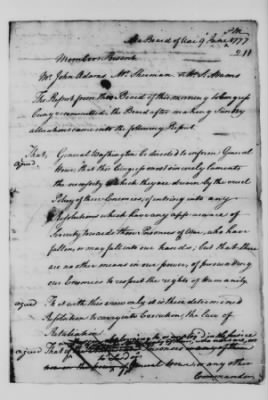 At a Board of War 9 June 1777 P.M.
211
Members Present
Mr. John Adams Mr. Sherman
The Report from this Board of this morning to Congress
being recommitted, the Board after making Sundry
alterations came into the following Report
That, General Washington be directed to inform General
agreed. Howe, that this Congress most sincerely laments
the necessity to which they are driven by the cruel
Policy of their Enemies, of entering into any
Resolutions which have any appearance of
Severity towards those Prisoners of War, who have
fallen, or may fall into our hands; but that there
are no other means in our power, of persuading
our Enemies to respect the rights of Humanity
agreed It is with this view only it is their determined
Resolution to carry into Execution, the law of
Retaliation
agreed That
General Howe, or any other
Commander